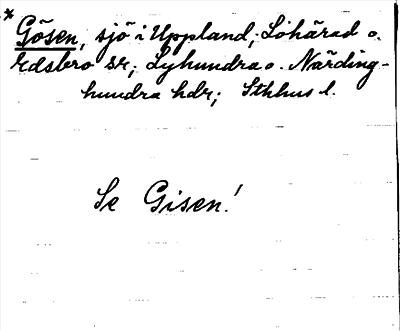 * Gösen, sjö i Uppland; Lohärad o.
Edsbro sr; Lyhundra o. Närding-
hundra hdr; Sthhus l.
Se Gisen!